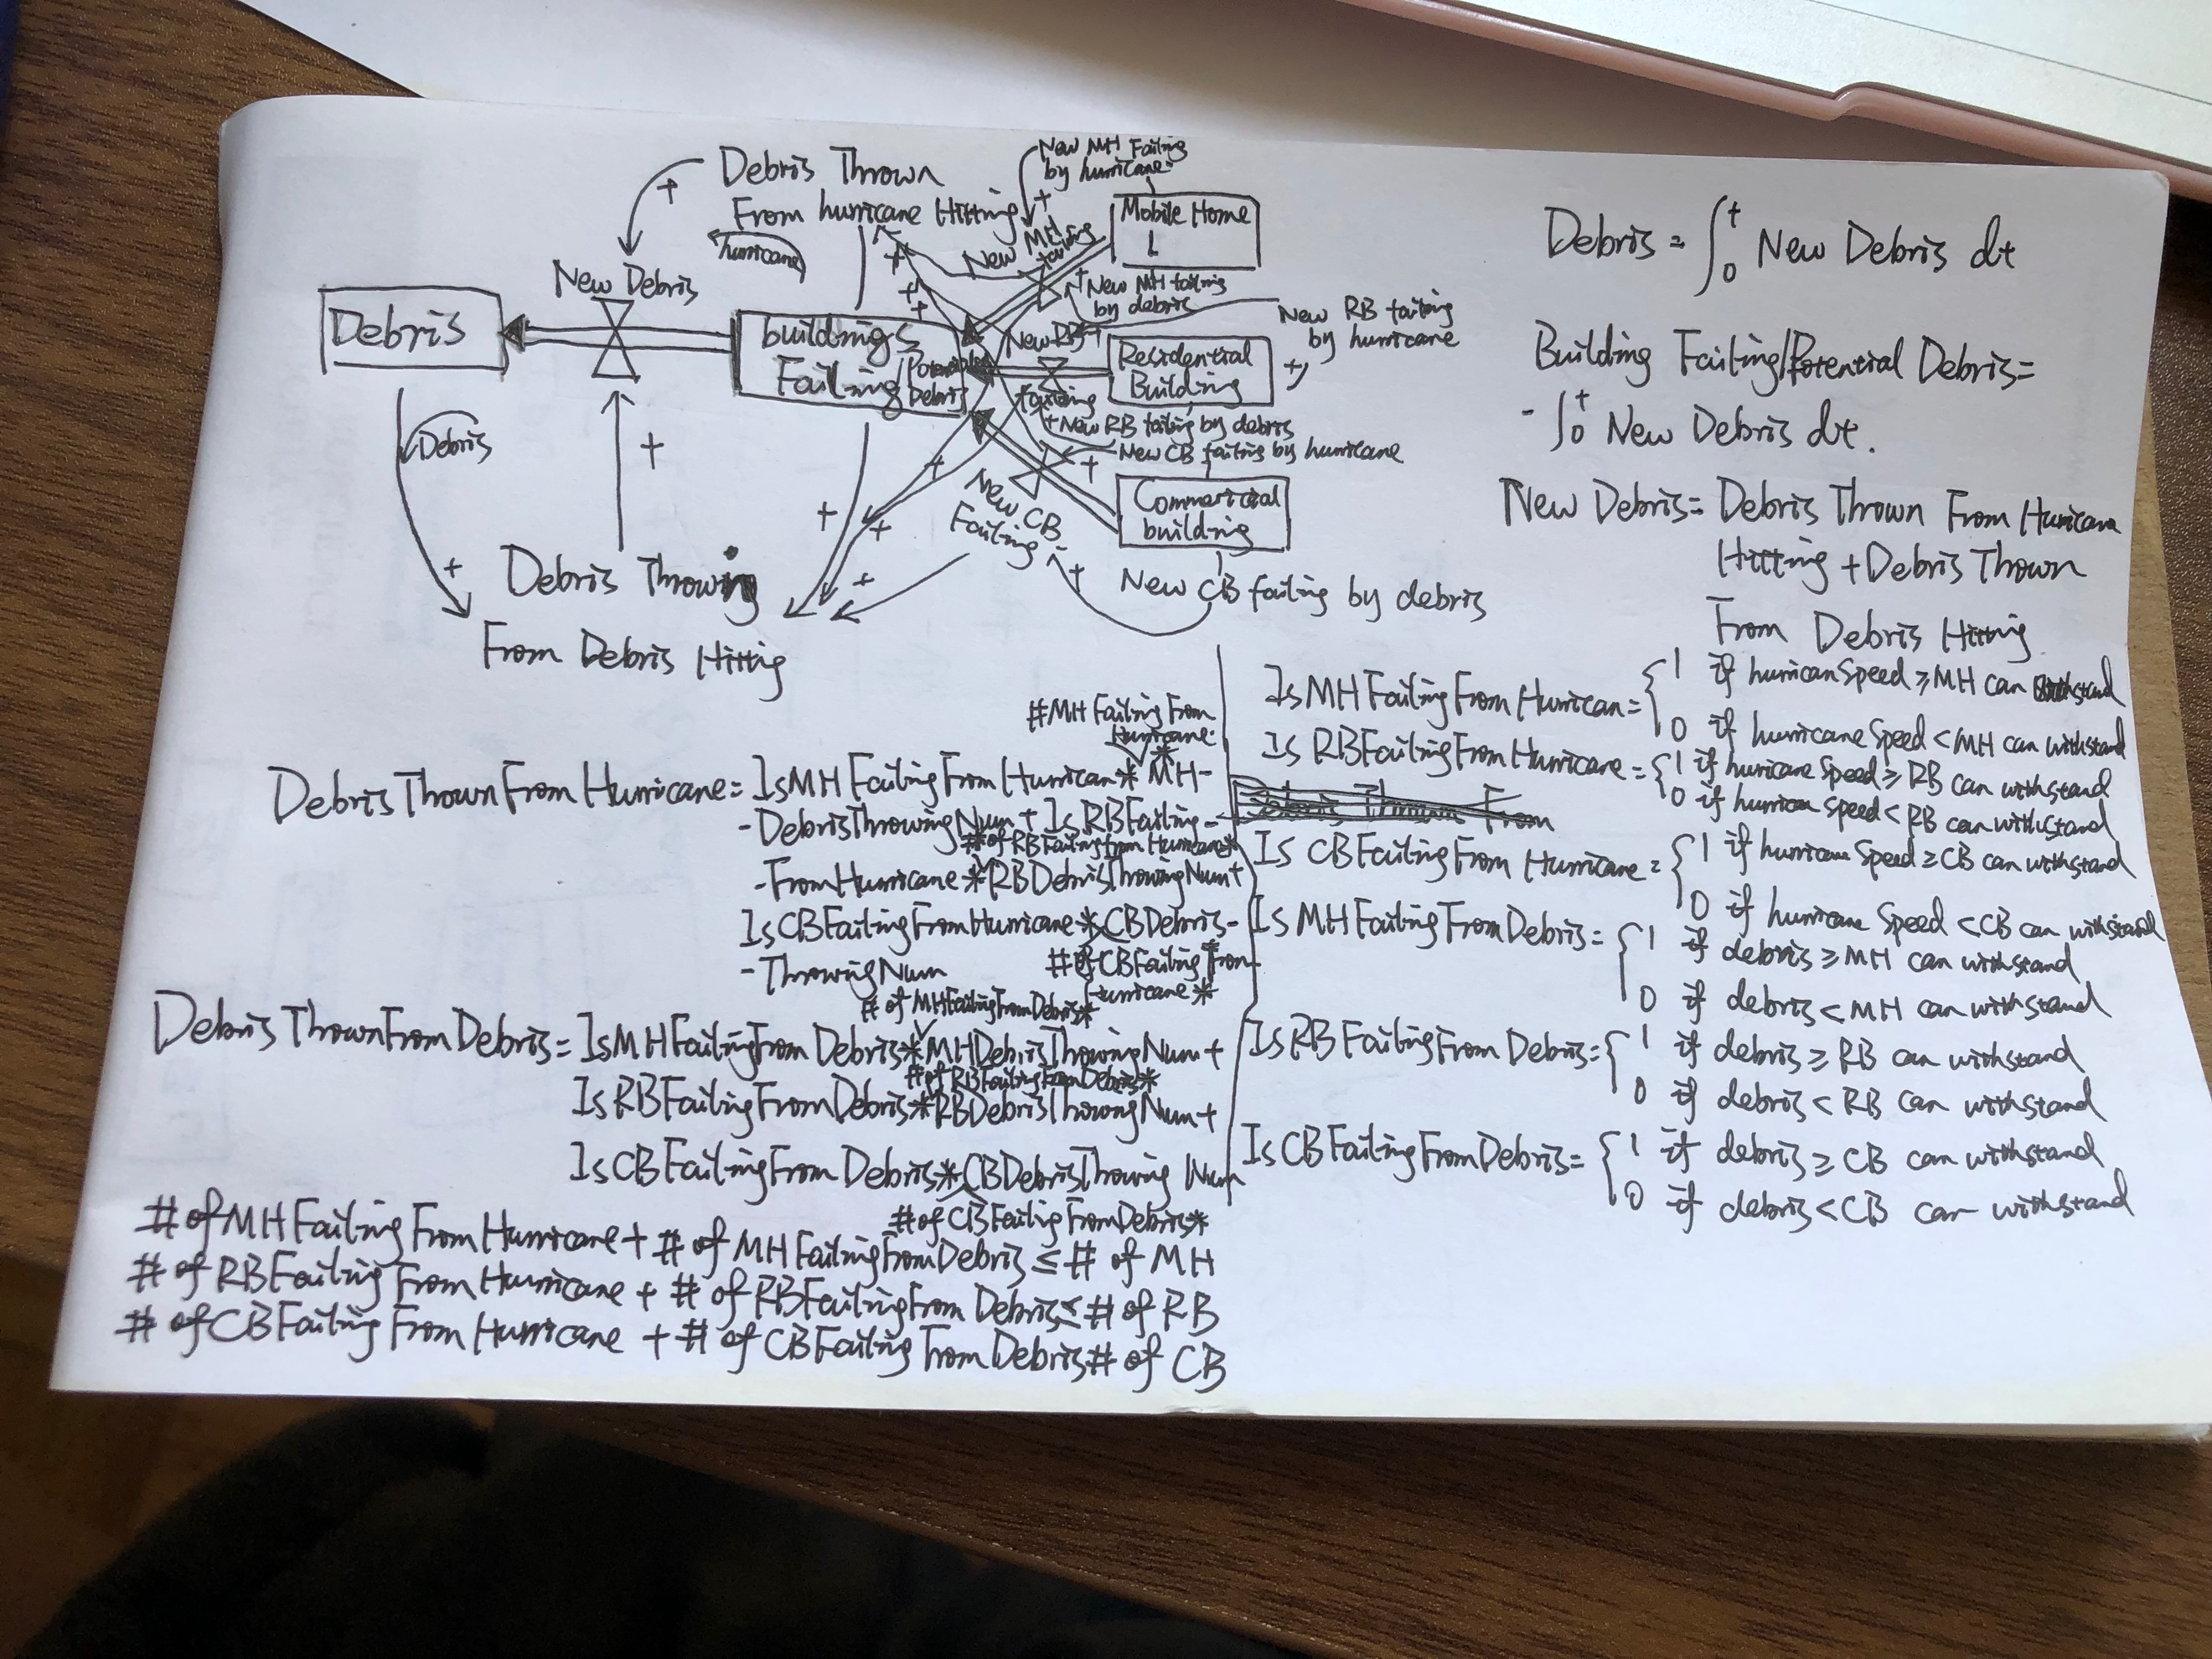 Debris Thrown
From hurricane Hitting
hurricane
New MH Failing
by hurricane
Mobile Home
L
New MH
failing
New MH failing
by debris
New Debris
Debris
buildings
Failing/Potential
Debris
New RB
failing
Residential
Building
New RB failing
by hurricane
+New RB failing by debris
New CB failing by hurricane
New CB
Failing
Commaricial
building
New CB failing by debris
Debris
Debris Throwing
From Debris Hittig
Debris = ∫₀ᵗ New Debris dt
Building Failing/Potential Debris=
- ∫₀ᵗ New Debris dt.
New Debris= Debris Thrown From Hurricane
Hitting +Debris Thrown
From Debris Hitting
#MH Failing From
Hurricane
*
DebrisThrownFromHurricane= IsMHFailingFromHurrican* MH-
-DebrisThrowingNum+ IsRBFailing-
#of RBFailingfromHurricane*
-FromHurricane*RBDebrisThrowingNum+
IsCBFailingFromHurricane*CBDebris-
-ThrowingNum
#of CBFailing From
Hurricane*
# of MHFailingFromDebris*
DebrisThrownFromDebris= IsMHFailingFromDebris*MHDebrisThrowingNum+
# of RBFailingFromDebris*
IsRBFailingFromDebris*RBDebrisThrowingNum+
IsCBFailingFromDebris*CBDebrisThrowing Num
#of CBFailigFromDebris*
# of MHFailingFromHurricane+ # of MHFailingFromDebris ≤ # of MH
# of RBFailingFromHurricane + # of RBFailingFromDebris≤ # of RB
# of CBFailingFromHurricane + # of CBFailingFromDebris# of CB
IsMHFailingFromHurrican= { 1 if hurricanSpeed ≥MH can withstand
0 if hurricaneSpeed < MH can withstand
Is RBFailingFromHurricane= { 1 if huricane Speed ≥ RB can withstand
0 if hurrican speed < RB can withstand
Debris Thrown From
Is CBFailingFromHurricane= { 1 if hurricane Speed ≥CB can withstand
0 if hurricane Speed <CB can withstand
Is MHFailingFromDebris= { 1 if debris ≥MH can withstand
0 if debris < MH can withstand
IsRBFailingFromDebris= { 1 if debris ≥ RB can withstand
0 if debris < RB can withstand
IsCBFailingFromDebris= { 1 if debris ≥ CB can withstand
0 if debris <CB can withstand